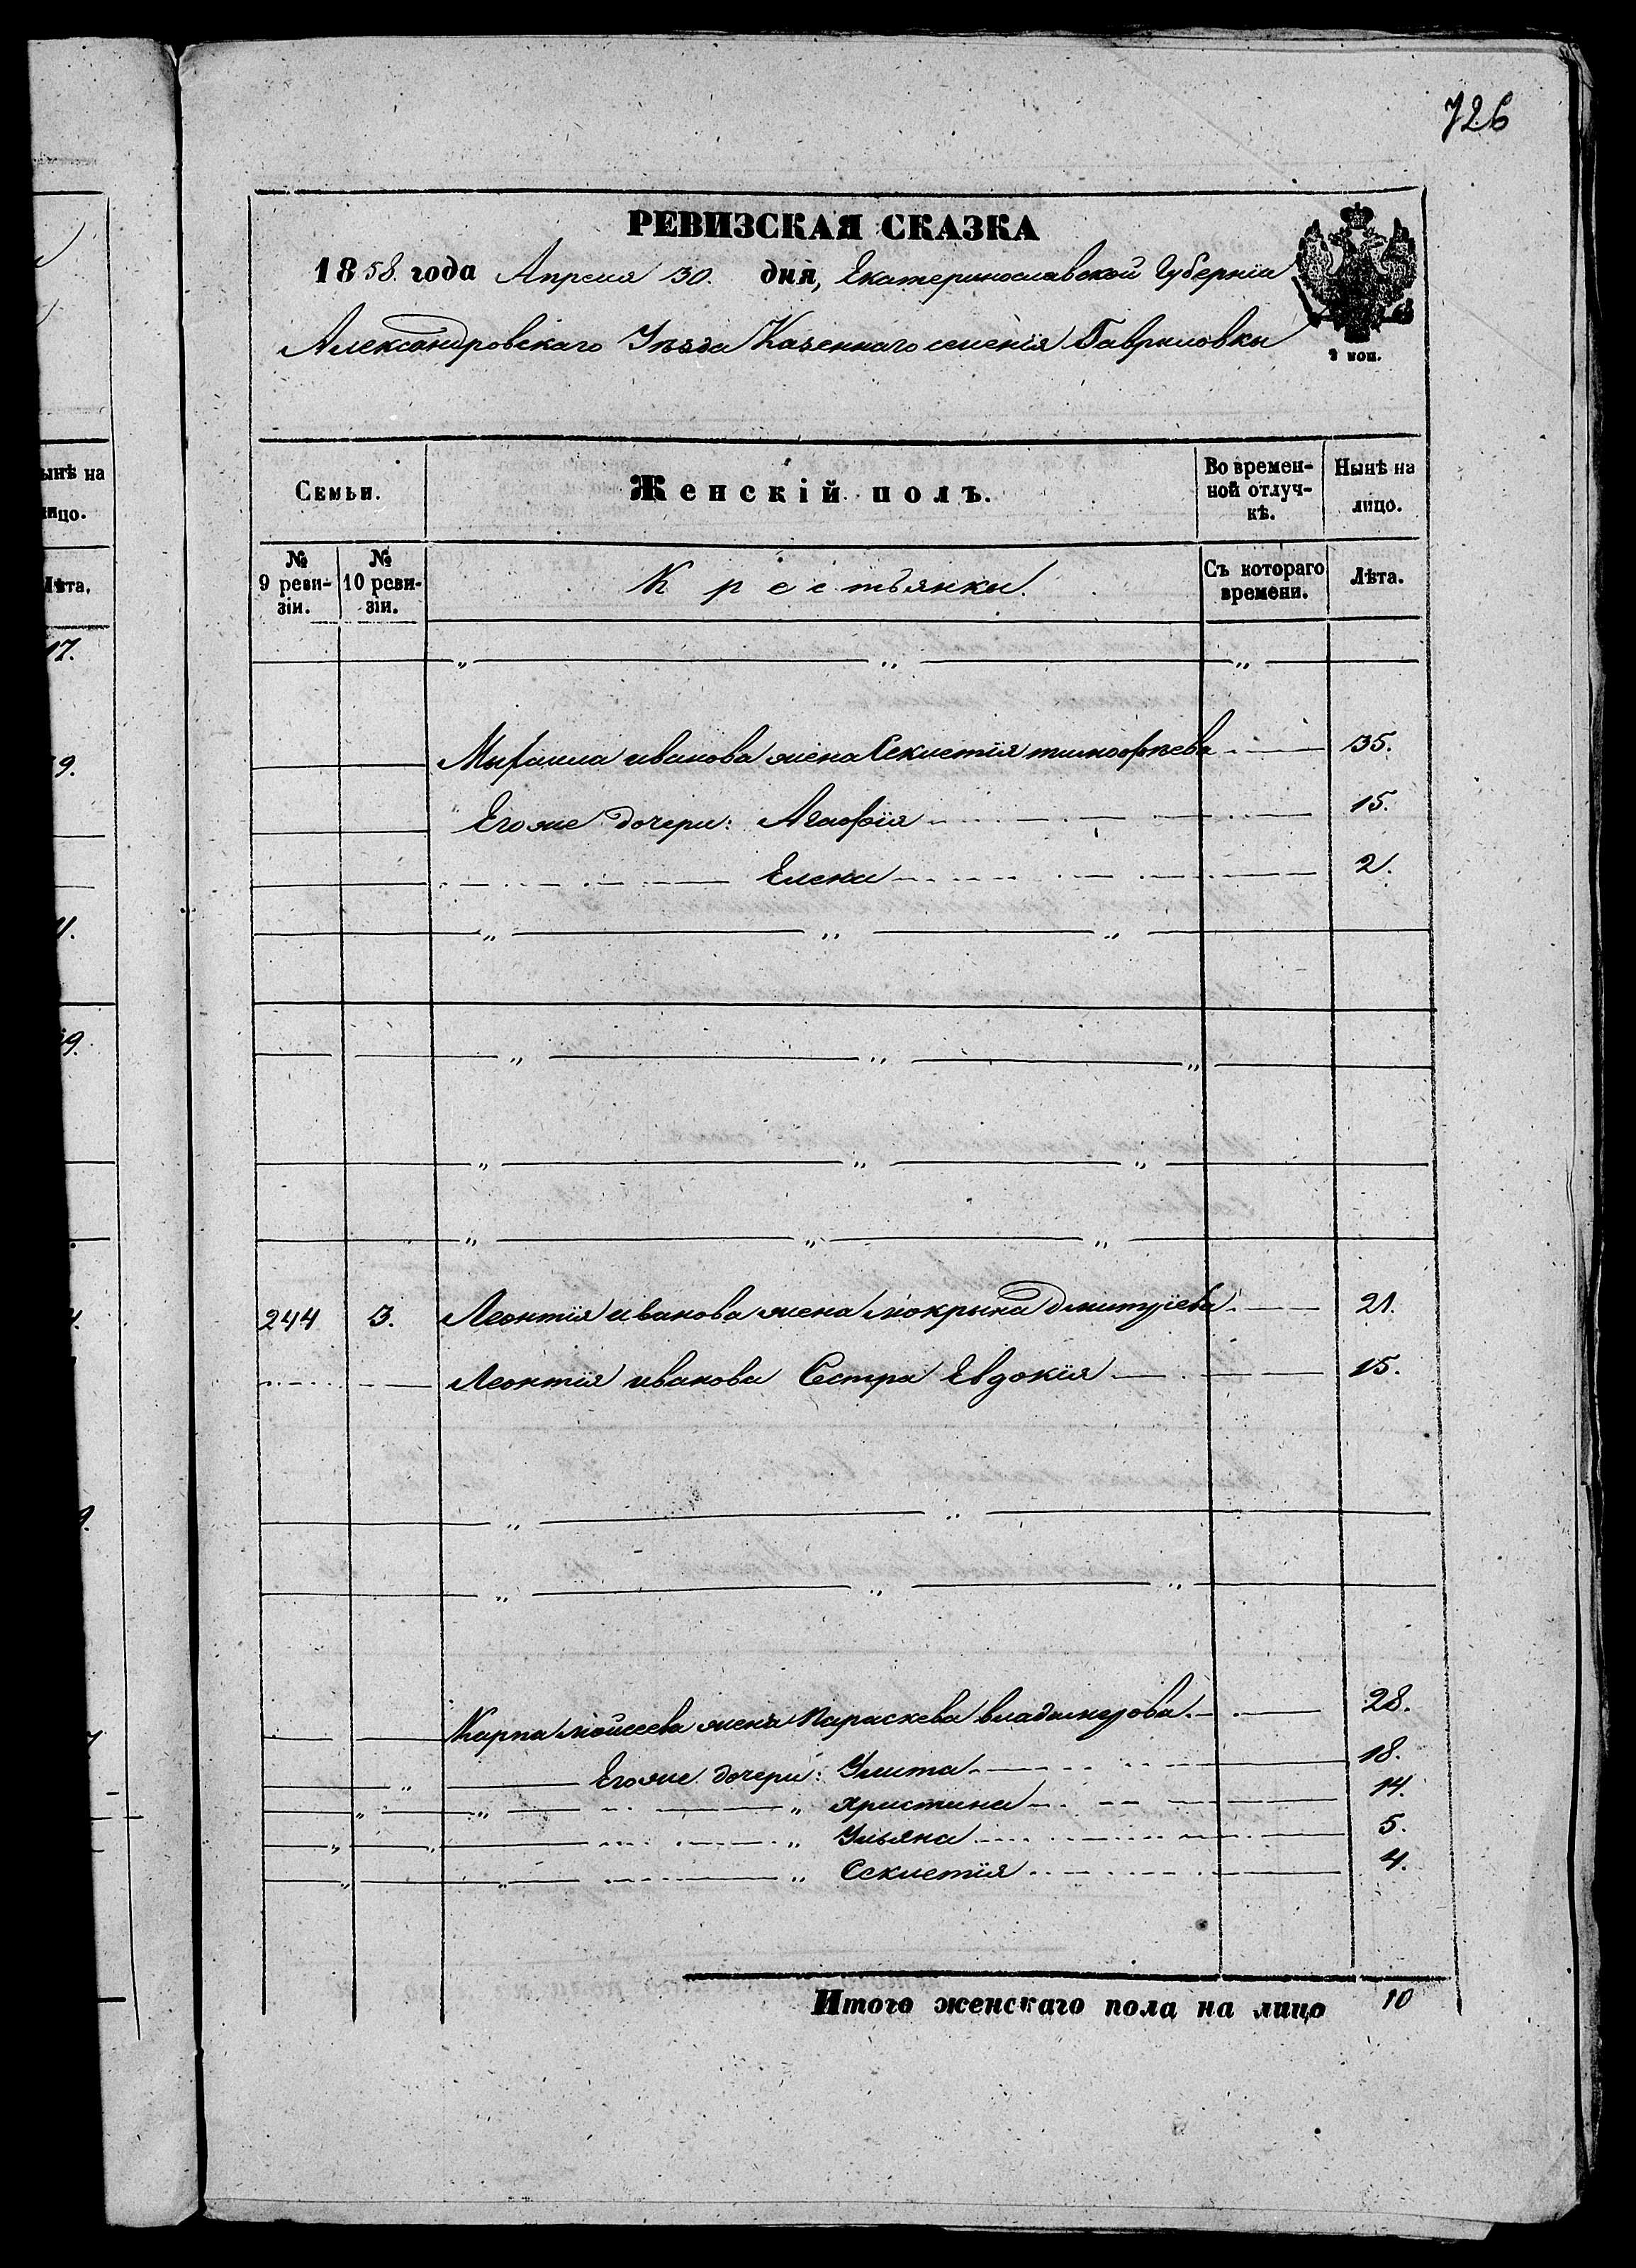 726
РЕВИЗСКАЯ СКАЗКА
1858. года Апреля 30. дня, Екатеринославской Губерніи
Александровскаго Уѣзда Казеннаго селенія Гавриловки
3 коп.
Семьи.
Женскій полъ.
Во времен-
ной отлуч-
кѣ.
Нынѣ на
лицо.
№
9 реви-
зіи.
№
10 реви-
зіи.
Крестьянки.
Съ котораго
времени.
Лѣта.
ынѣ на
ицо.
ѣта.
17.
9.
Михаила иванова жена Секлетія тимофѣева 35.
Егоже дочери: Агафія 15.
Елена 2.
244 3. Леонтія иванова жена Мокрына дмитріева 21.
Леонтія иванова Сестра Евдокія 15.
Карпа Мойсеева жена Параскева владимерова 28.
Егоже дочери: Улита 18.
Христина 14.
Ульяна 5.
Секлетія 4.
Итого женскаго пола на лицо 10